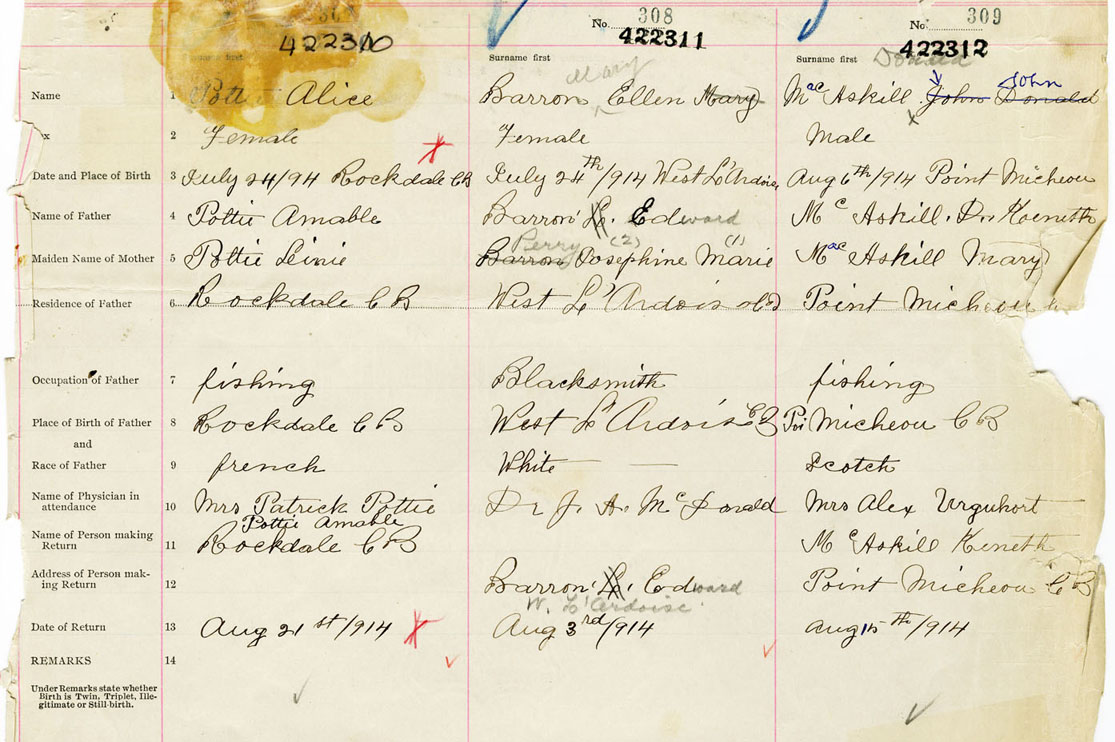 No. 308 No. 309
422310 422311 422312
Surname first Surname first Surname first
Mary Donald
John
Name 1 Pottie Alice Barron Ellen Mary MacAskill John Donald
Sex 2 Female Female Male
Date and Place of Birth 3 July 24/94 Rockdale CB July 24th/914 West L'Ardoise, Aug 6th/914 Point Micheou
Name of Father 4 Pottie Amable Barron L. Edward McAskill. Kenneth
Perry (2) (1)
Maiden Name of Mother 5 Pottie Barron Josephine Marie MacAskill Mary
Residence of Father 6 Rockdale CB West L'Ardois CB Point Micheou
Occupation of Father 7 fishing Blacksmith fishing
Place of Birth of Father 8 Rockdale CB West L'Ardois CB Poi Micheou CB
and
Race of Father 9 french White Scotch
Name of Physician in
attendance 10 Mrs Patrick Pottie Dr J. A. McDonald Mrs Alex Urguhort
Pottie Amable
Name of Person making
Return 11 Rockdale CB McAskill Keneth
Address of Person mak-
ing Return 12 Barron L. Edward Point Micheou CB
W. L'Ardoise.
Date of Return 13 Aug 21st/914 Aug 3rd/914 Aug 15th/914
REMARKS 14
Under Remarks state whether
Birth is Twin, Triplet, Ille-
gitimate or Still-birth.